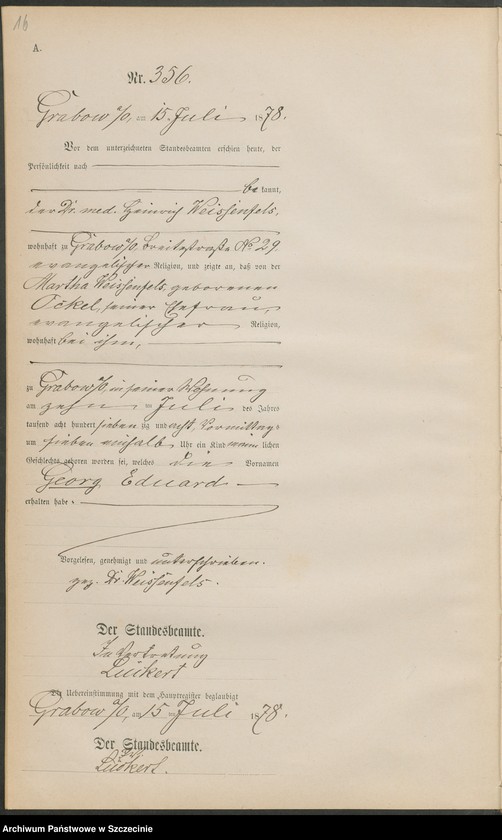 16
A.
Nr. 356.
Grabow a/O, am 15. Juli 1878.
Vor dem unterzeichneten Standesbeamten erschien heute, der
Persönlichkeit nach
be kannt,
der Dr. med. Heinrich Weissenfels,
wohnhaft zu Grabow a/O. Breitestraße No 29
evangelischer Religion, und zeigte an, daß von der
Martha Weissenfels, geborenen
Ockel, seiner Ehefrau,
evangelischer Religion,
wohnhaft bei ihm,
zu Grabow a/O, in seiner Wohnung
am zehn ten Juli des Jahres
tausend acht hundert sieben zig und acht, Vormittags
um sieben einhalb Uhr ein Kind männ lichen
Geschlechts geboren worden sei, welches die Vornamen
Georg Eduard
erhalten habe.
Vorgelesen, genehmigt und unterschrieben.
gez. Dr. Weissenfels.
Der Standesbeamte.
In Vertretung
Lückert
Die Uebereinstimmung mit dem Hauptregister beglaubigt
Grabow a/O, am 15 ten Juli 1878.
Der Standesbeamte.
Lückert.
Archiwum Państwowe w Szczecinie